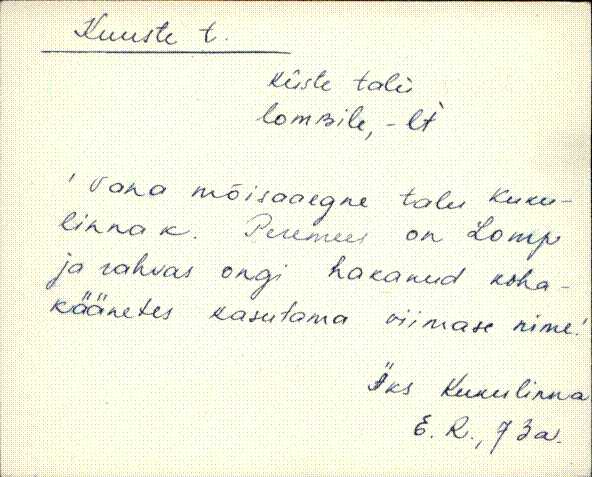 Kuuste t.
küste talu
lompile, -lt
'Vana mõisaaegne talu Kuku-
linna k. Peremees on Lomp
ja rahvas ongi hakanud koha-
käänetes kasutama viimase nime.'
Äks Kukulinna
E. R., 73a.